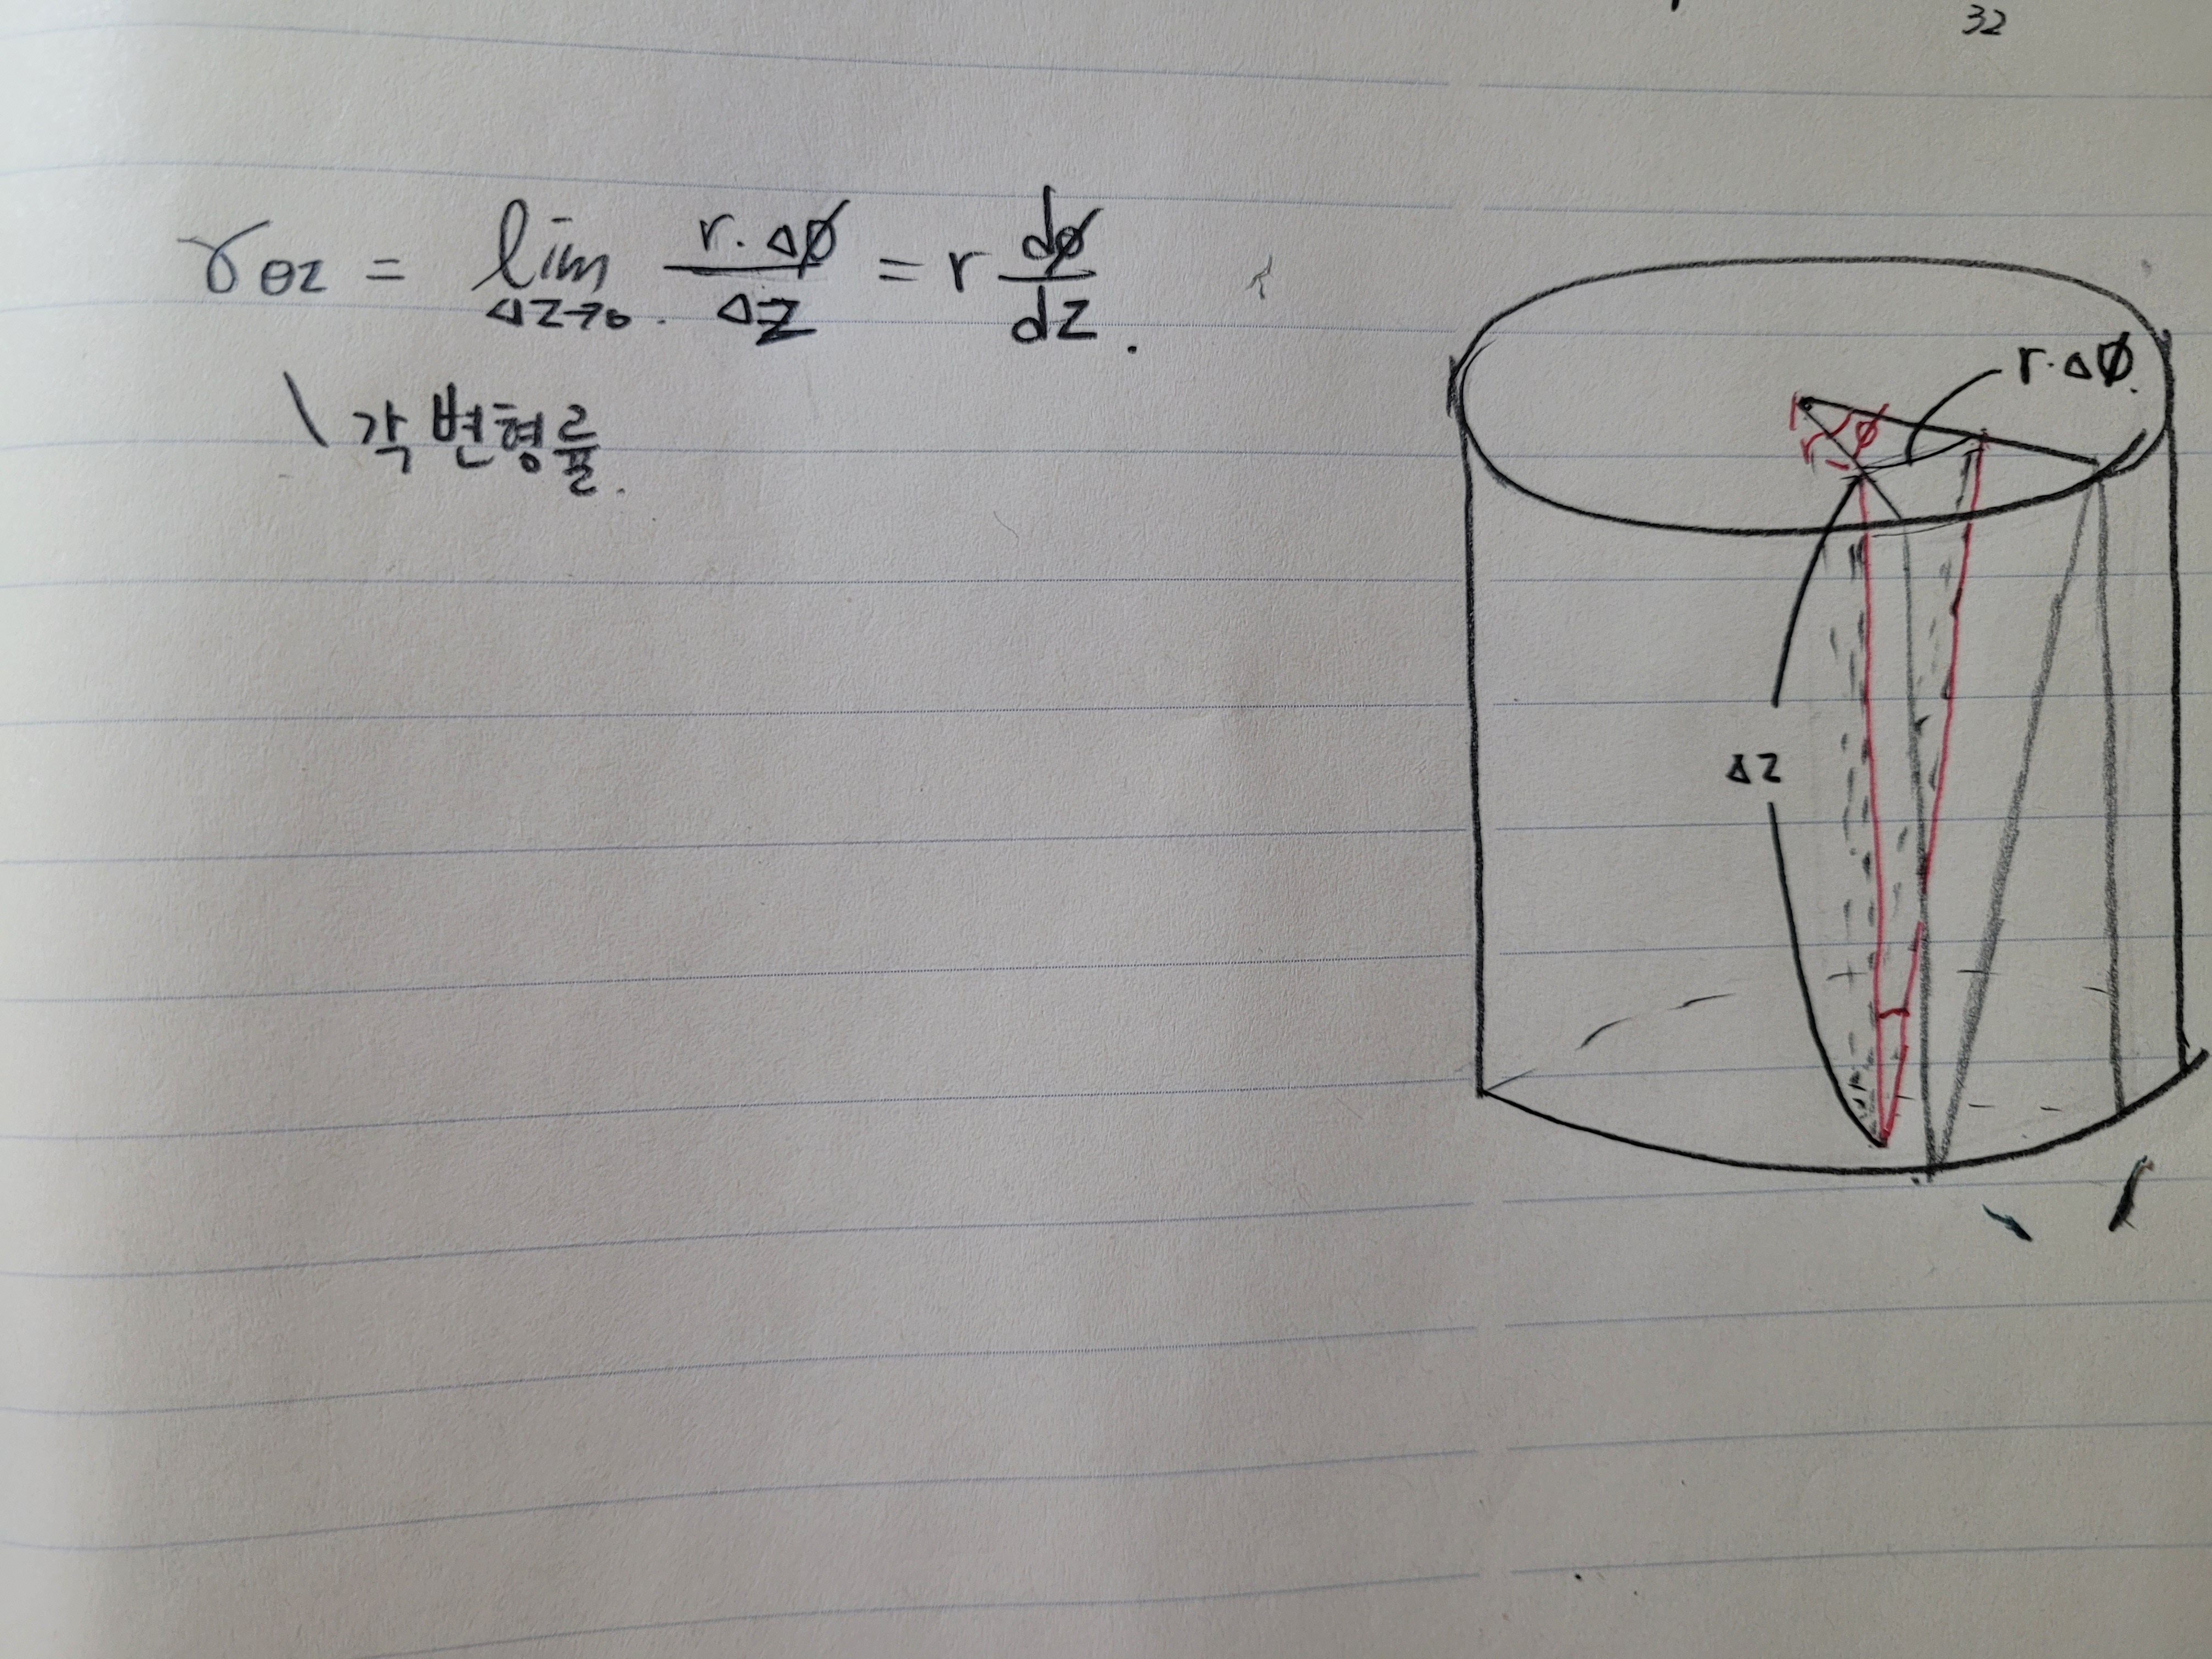 32
γθz = lim Δz→0. r·Δϕ/Δz = r dϕ/dz.
각변형률.
r·Δϕ.
r ϕ
Δz